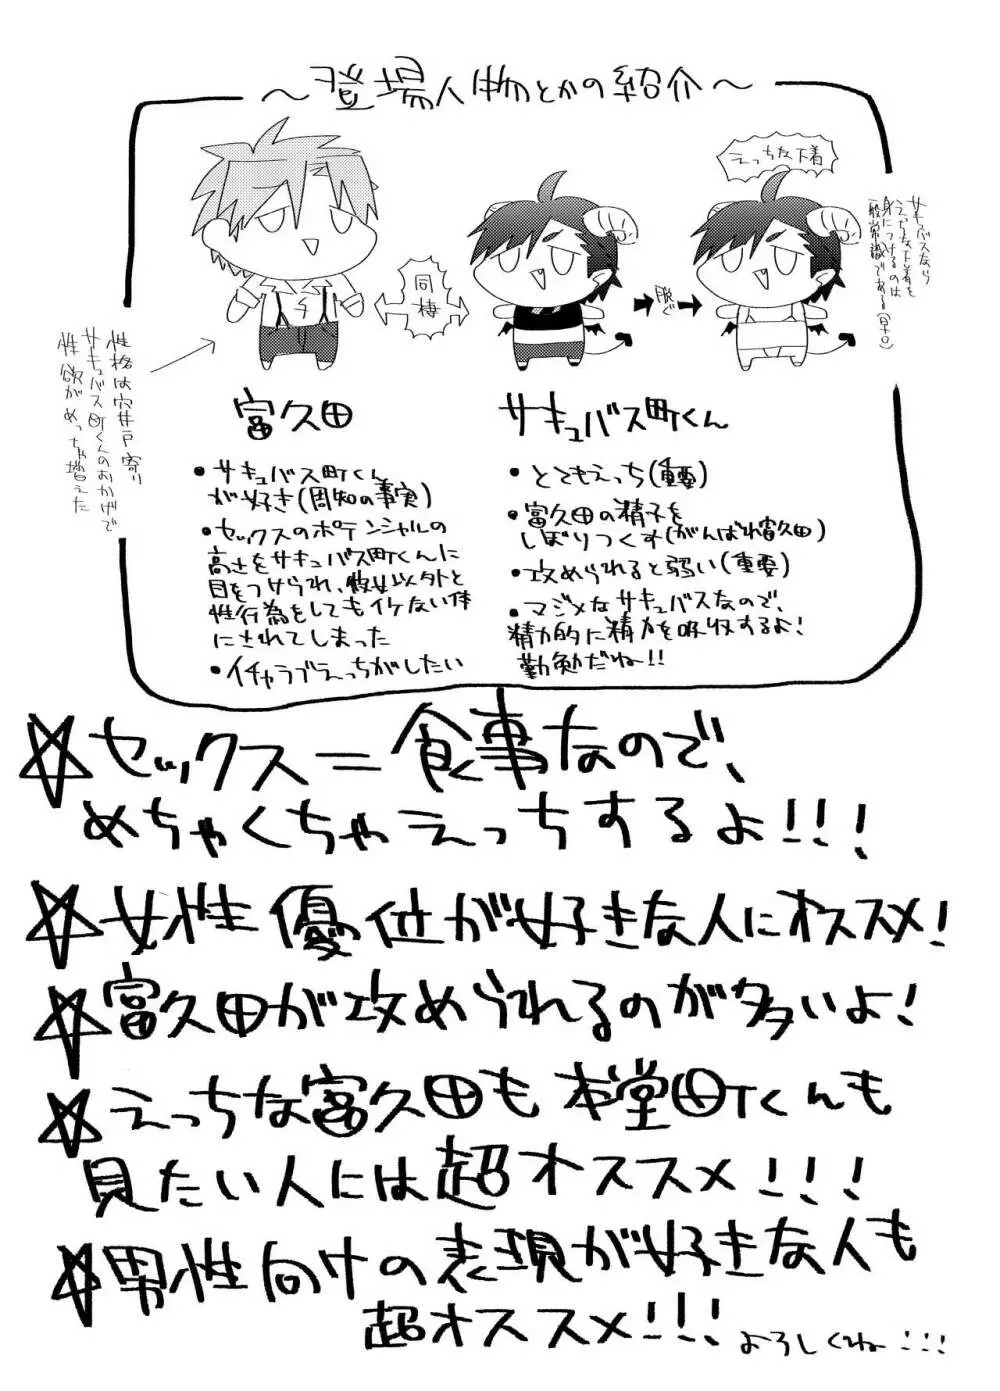 ～登場人物とかの紹介～
えっちな下着
サキュバスなら
えっちな下着を
身につけるのは
一般常識である(早口)
同棲
脱ぐ
性格は穴井戸寄り
サキュバス町くんのおかげで
性欲がめっちゃ増えた
富久田
・サキュバス町くん
が好き(周知の事実)
・セックスのポテンシャルの
高さをサキュバス町くんに
目をつけられ、彼女以外と
性行為をしてもイケない体
にされてしまった
・イチャラブえっちがしたい
サキュバス町くん
・とてもえっち(重要)
・富久田の精子を
しぼりつくす(がんばれ富久田)
・攻められると弱い(重要)
・マジメなサキュバスなので、
精力的に精力を吸収するよ!
勤勉だね!!
☆セックス=食事なので、
めちゃくちゃえっちするよ!!!
☆女性優位が好きな人にオススメ!
☆富久田が攻められるのが多いよ!
☆えっちな富久田も本堂町くんも
見たい人には超オススメ!!!
☆男性向けの表現が好きな人も
超オススメ!!! よろしくね…!!!